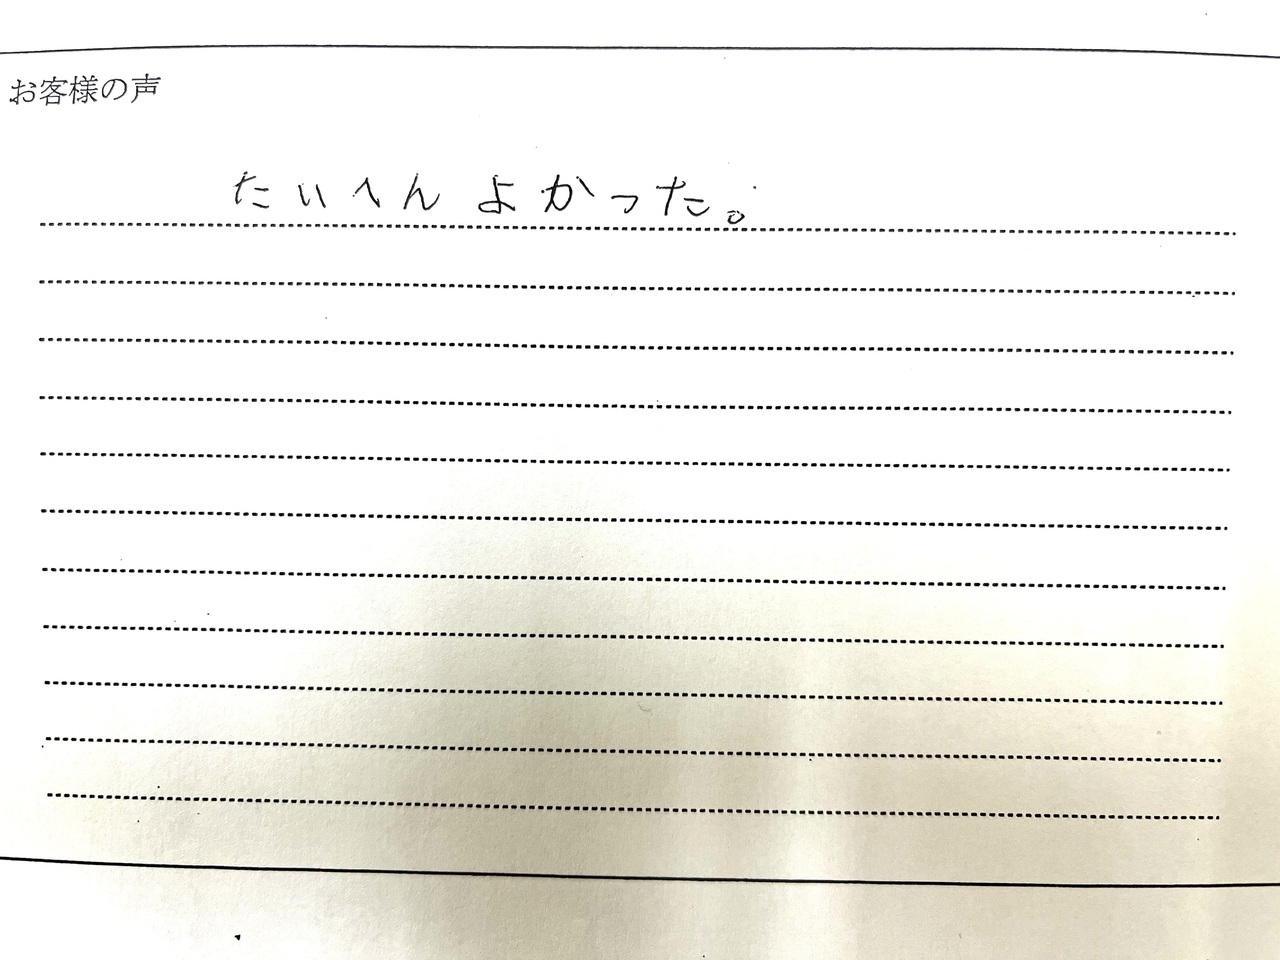 お客様の声
たいへん よかった。